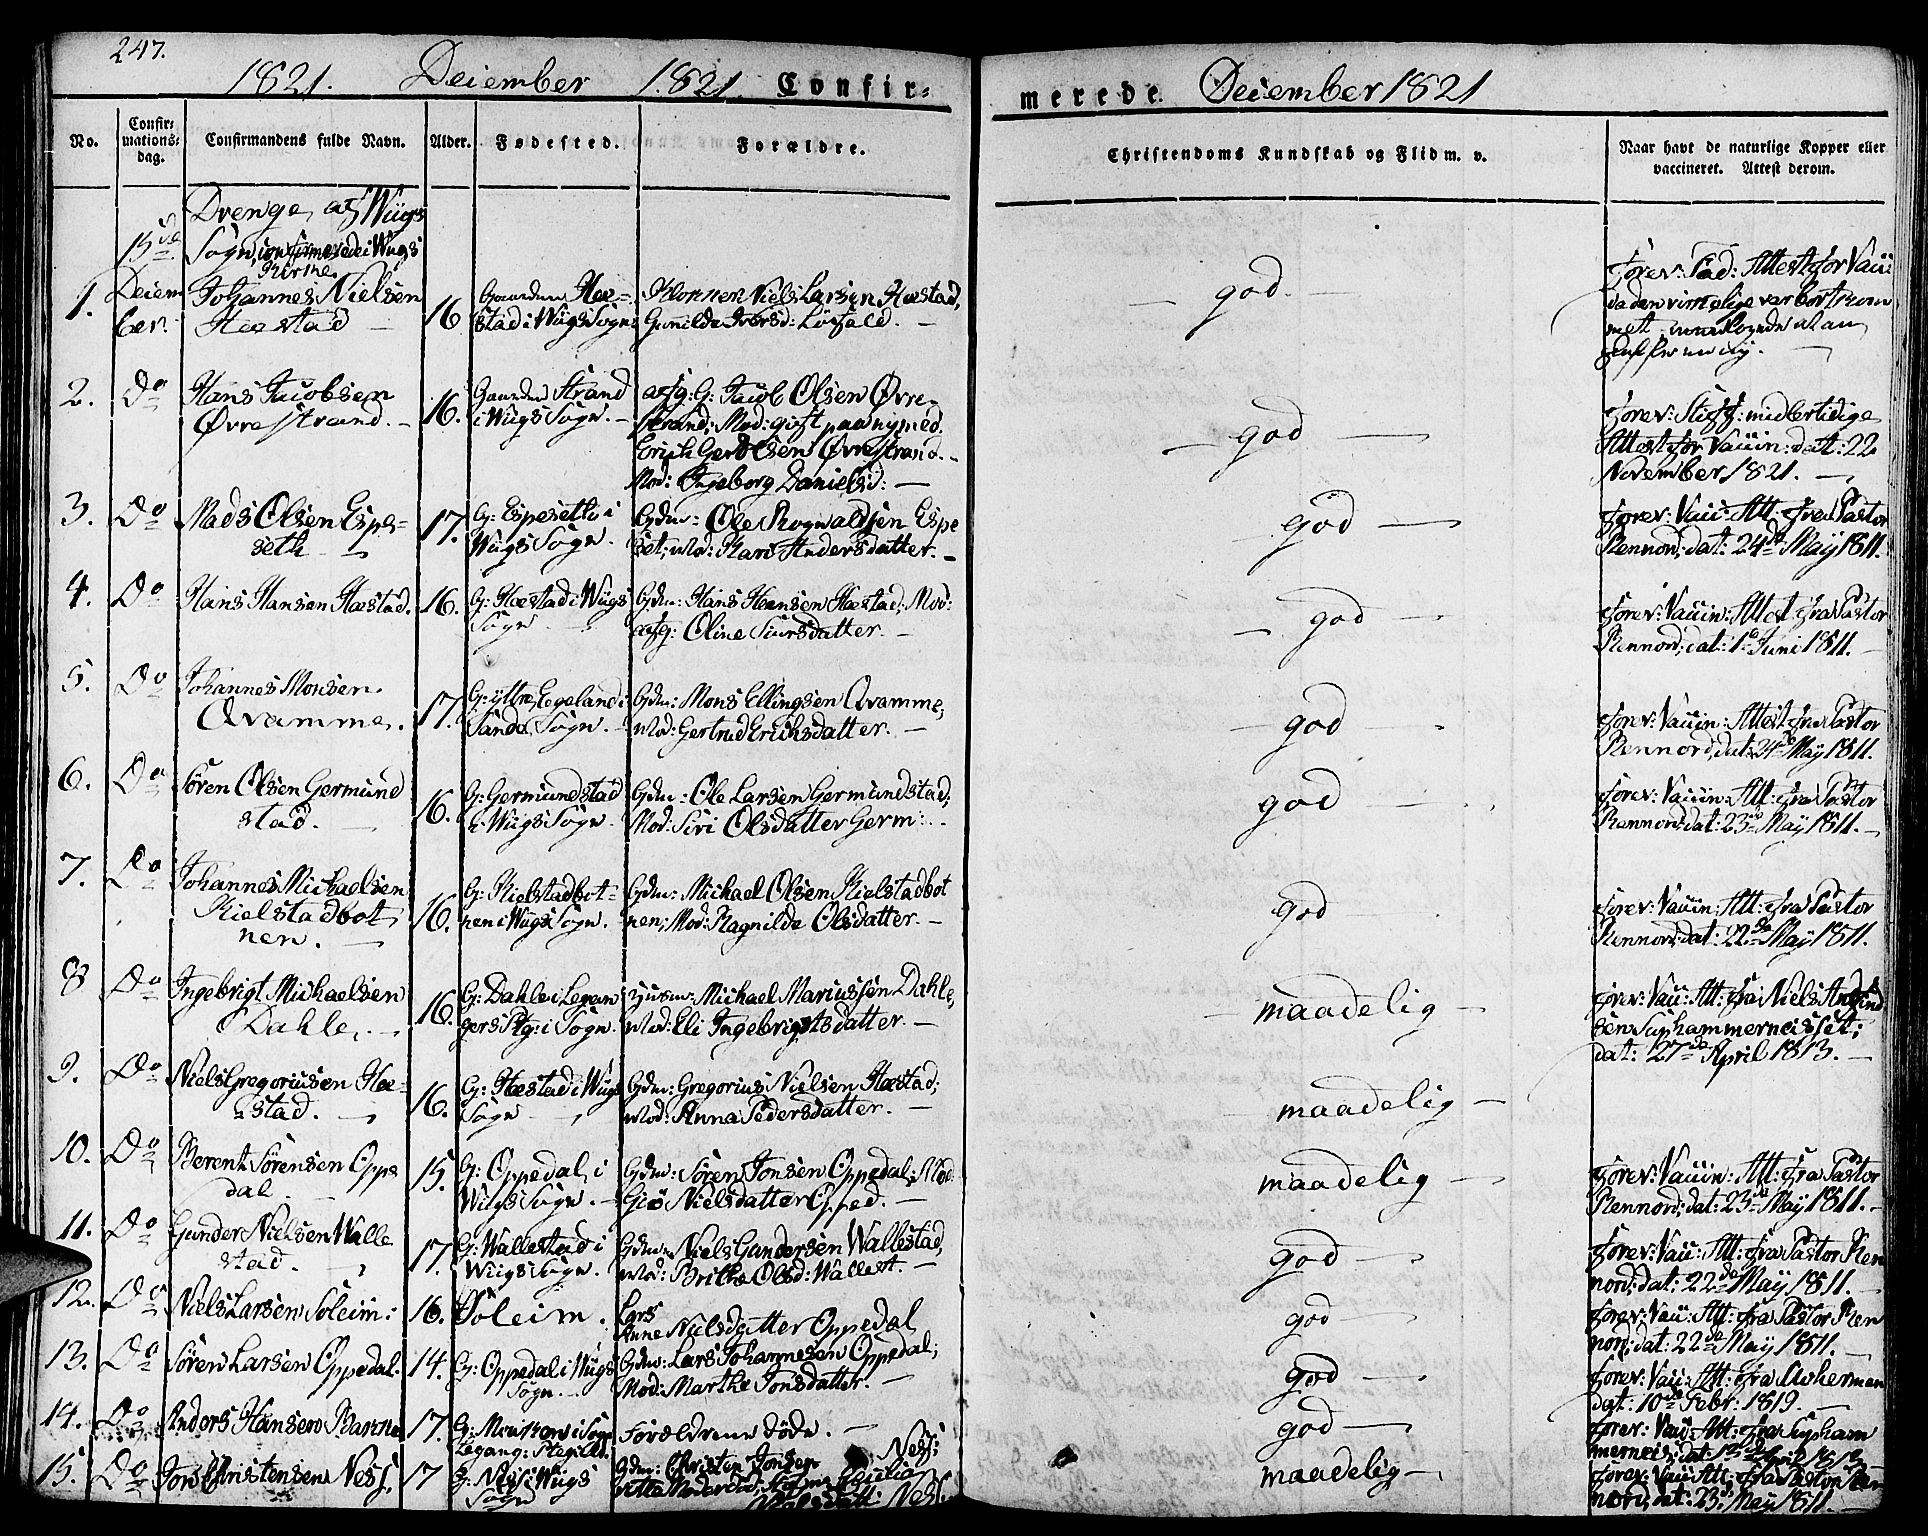 247.
1821. Deiember 1821. Confir=
merede. Deiember 1821
No.
Confir=
mations=
dag.
Confirmandens fulde Navn.
Alder.
Fødested.
Forældre.
Christendoms Kundskab og Flid m. v.
Naar havt de naturlige Kopper eller
vaccineret. Attest derom.
Drenge, af Wiigs
Sogn, confirmerede i Wiigs
Kirche
1. Deiem
ber. Johannes Nielsen
Hæstad 16 Gaarden Hæ=
stad i Wiigs Sogn: Niels Larsen Hæstad,
Gunnilda Iversd: god.
2. Do Hans Jacobsen
Øvrestrand. 16. Gaarden Strand
i Wiigs Sogn. afg: G: Jacob Olsen Øvre
strand; Mod: gift paa ny med
Erich Olsen Øvrestrand.
Mod: Ingeborg Danielsd: god forev: Stift: midlertidige
Attest for Vaccin: dat: 22
November 1821.
3. Do Mads Olsen Espe=
seth 17. G: Espeseth i
Wiigs Sogn. Gdm: Ole Rognaldsen Espe
set; Mod: Kari Andersdatter. god forev: Vacc: Att: fra Pastor
Rennord; dat: 24de May 1811.
4. Do Hans Hansen Hæstad. 16. G: Hæstad i Wiigs
Sogn Gdm: Hans Hansen Hæstad; Mod:
afg: Oline Siursdatter. god forev: Vaccin: Attest fra Pastor
Rennord; dat: 1ste Juni 1811.
5. Do Johannes Monsen
Qvamme. 17. G: yttre Egeland i
Sande Sogn. Gdm: Mons Ellingsen Qvamme,
Mod: Gertrud Erichsdatter. god forev: Vaccin: Attest fra Pastor
Rennord, dat: 24de May 1811.
6. Do Sören Olsen Germund
stad. 16. G: Germundstad
i Wiigs Sogn. Gdm: Ole Larsen Germundstad;
Mod: Siri Olsdatter Germ: god forev: Vaccin: Att: fra Pastor
Rennord; dat: 23de May 1811.
7. Do Johannes Michaelsen
Kielstadbot
nen. 16. G: Kielstadbot=
nen i Wiigs Sogn. Gdm: Michael Olsen Kielstadbot
nen; Mod: Ragnilde Olsdatter. god forev: Vaccin: Att: fra Pastor
Rennord; dat: 22de May 1811.
8 Do Ingebrigt Michaelsen
Dahle. 16. G: Dahle i Legan
gers Ptg: i Sogn. Husm: Michael Mariussen Dahle,
Mod: Eli Ingebrigtsdatter. maadelig forev: Vacc: Att: fra Niels
dat: 27de April 1813.
9. Do Niels Gregoriusen Hæ=
stad. 16. G: Hæstad i Wiigs
Sogn Gdm: Gregorius Nielsen Hæstad;
Mod: Anna Pedersdatter. maadelig
10. Do Berent Sörensen Oppe
dal 15. G: Oppedal i
Wiigs Sogn. Gdm: Sören Jonsen Oppedal; Mod:
Giö Nielsdatter Opped. maadelig forev: Vaccin: Att: fra Pastor
Rennord; dat: 23de May 1811.
11. Do Gunder Nielsen Walle
stad. 17. G: Wallestad i
Wiigs Sogn. Gdm: Niels Gundersen Wallestad,
Mod: Brithe Olsd: Wallest. god forev: Vacc: Att: fra Pastor Ren
nord; dat: 22de May 1811.
12. Do Niels Larsen Soleim: 16. Soleim. Lars
Anne Nielsdatter Oppedal god forev: Vacc: Att: fra Pastor Ren
nord; dat: 22de May 1811.
13. Do Sören Larsen Oppedal. 14. G: Oppedal i Wiigs
Sogn. Gdm: Lars Johannesen Oppedal;
Mod: Marthe Jonsdatter. god forev: Vacc: Att: fra
dat: 10de Febr: 1819.
14. Do Anders Hansen 17. Forældrene döde. god forev: Vacc: Att: fra
15. Do Jon Christensen Ness. 17 G: Ness i Wiigs
Sogn Gdm: Christen Jonsen Ness; maadelig forev: Vacc: Att: fra Pastor Ren
nord, dat: 23de May 1811.